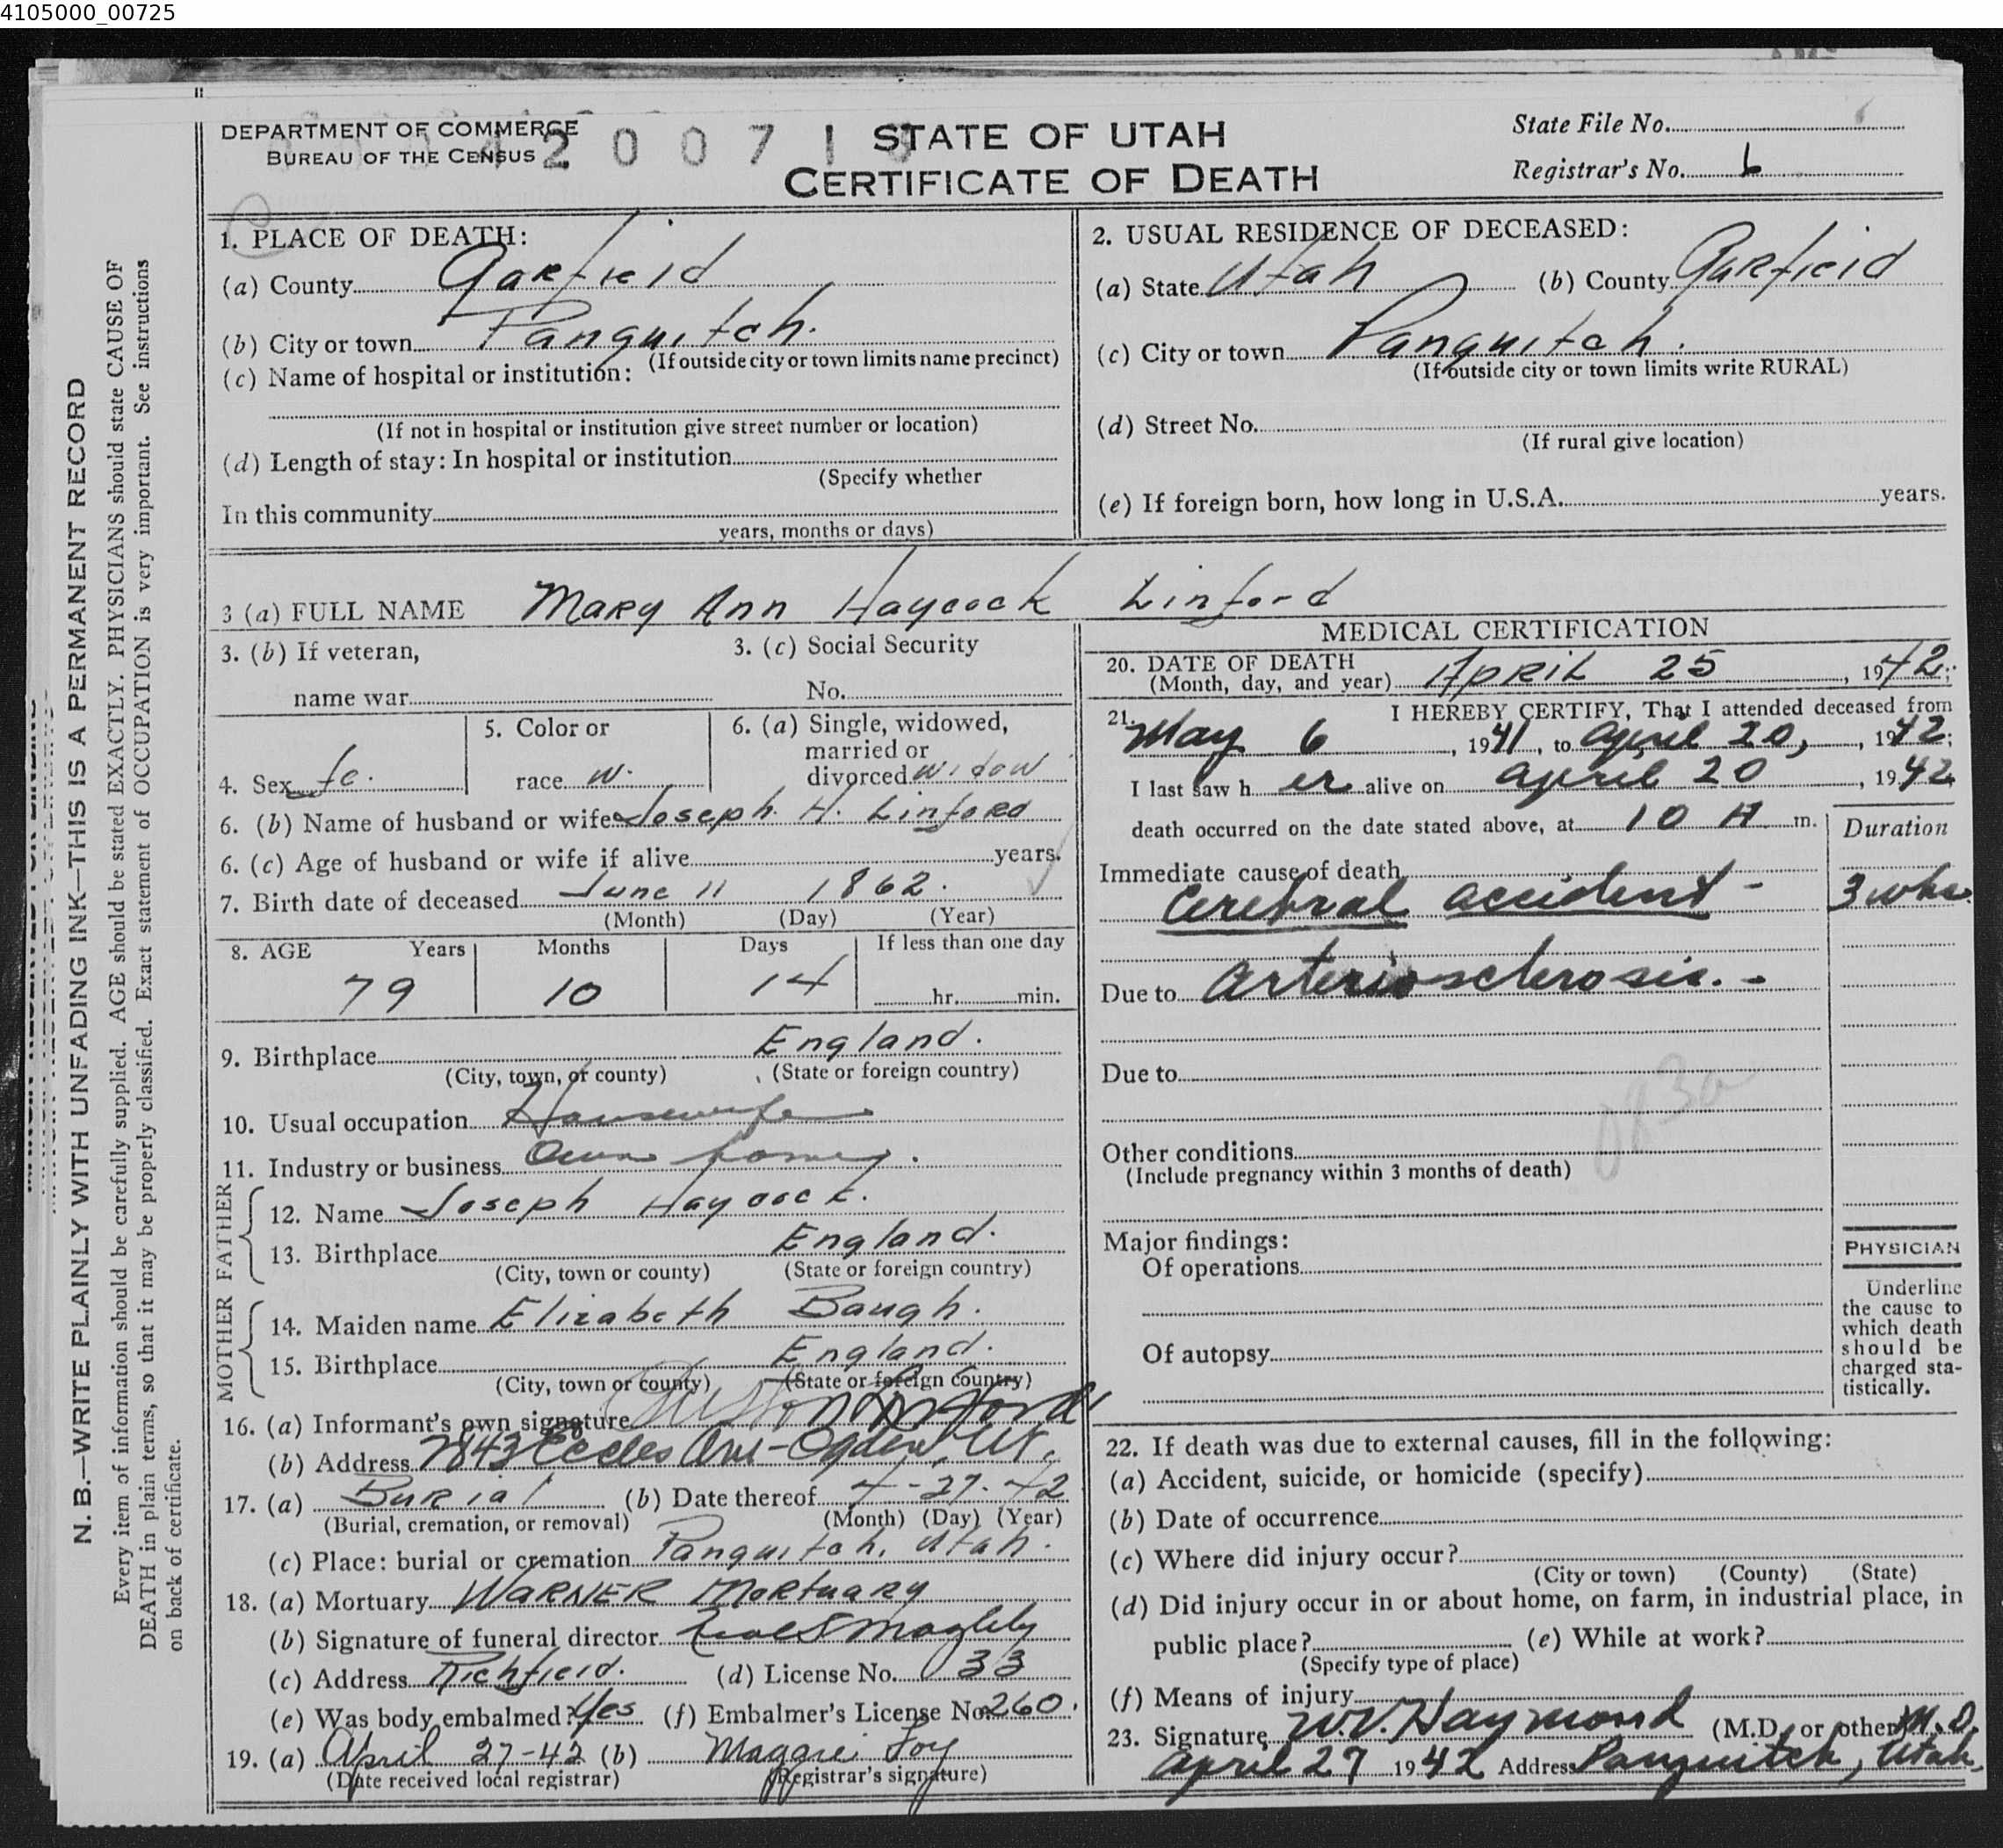 4105000_00725
DEPARTMENT OF COMMERCE
BUREAU OF THE CENSUS
2 0 0 7 1
STATE OF UTAH
CERTIFICATE OF DEATH
State File No.
Registrar's No. 6
1. PLACE OF DEATH:
(a) County Garfield
(b) City or town Panguitch.
(If outside city or town limits name precinct)
(c) Name of hospital or institution:
(If not in hospital or institution give street number or location)
(d) Length of stay: In hospital or institution
(Specify whether
In this community
years, months or days)
2. USUAL RESIDENCE OF DECEASED:
(a) State Utah (b) County Garfield
(c) City or town Panguitch.
(If outside city or town limits write RURAL)
(d) Street No.
(If rural give location)
(e) If foreign born, how long in U.S.A. years.
3 (a) FULL NAME Mary Ann Haycock Linford
3. (b) If veteran,
name war
3. (c) Social Security
No.
4. Sex fe.
5. Color or
race w.
6. (a) Single, widowed,
married or
divorced widow
6. (b) Name of husband or wife Joseph. H. Linford
6. (c) Age of husband or wife if alive years.
7. Birth date of deceased June 11 1862.
(Month) (Day) (Year)
8. AGE Years Months Days If less than one day
79 10 14 hr. min.
9. Birthplace England.
(City, town, or county) (State or foreign country)
10. Usual occupation Housewife
11. Industry or business Own home.
FATHER
12. Name Joseph Haycock.
13. Birthplace England.
(City, town or county) (State or foreign country)
MOTHER
14. Maiden name Elizabeth Baugh.
15. Birthplace England.
(City, town or county) (State or foreign country)
16. (a) Informant's own signature Linford
(b) Address 2843 Eccles Ave - Ogden Ut.
17. (a) Burial (b) Date thereof 4-27-42
(Burial, cremation, or removal) (Month) (Day) (Year)
(c) Place: burial or cremation Panguitch, Utah.
18. (a) Mortuary Warner Mortuary
(b) Signature of funeral director
(c) Address Richfield. (d) License No. 33
(e) Was body embalmed? Yes (f) Embalmer's License No. 260.
19. (a) April 27-42 (b) Maggie Foy
(Date received local registrar) (Registrar's signature)
MEDICAL CERTIFICATION
20. DATE OF DEATH
(Month, day, and year) April 25, 1942;
21. I HEREBY CERTIFY, That I attended deceased from
May 6, 1941, to April 20, 1942;
I last saw h er alive on April 20, 1942
death occurred on the date stated above, at 10 A m.
Duration
Immediate cause of death
Cerebral accident - 3 wks.
Due to Arteriosclerosis. -
Due to
083a
Other conditions
(Include pregnancy within 3 months of death)
Major findings:
Of operations
Of autopsy
PHYSICIAN
Underline
the cause to
which death
should be
charged sta-
tistically.
22. If death was due to external causes, fill in the following:
(a) Accident, suicide, or homicide (specify)
(b) Date of occurrence
(c) Where did injury occur?
(City or town) (County) (State)
(d) Did injury occur in or about home, on farm, in industrial place, in
public place? (e) While at work?
(Specify type of place)
(f) Means of injury
23. Signature W.V. Haymond (M.D. or other) M.D.
April 27 1942 Address Panguitch, Utah.
N. B.—WRITE PLAINLY WITH UNFADING INK—THIS IS A PERMANENT RECORD
Every item of information should be carefully supplied. AGE should be stated EXACTLY. PHYSICIANS should state CAUSE OF
DEATH in plain terms, so that it may be properly classified. Exact statement of OCCUPATION is very important. See instructions
on back of certificate.